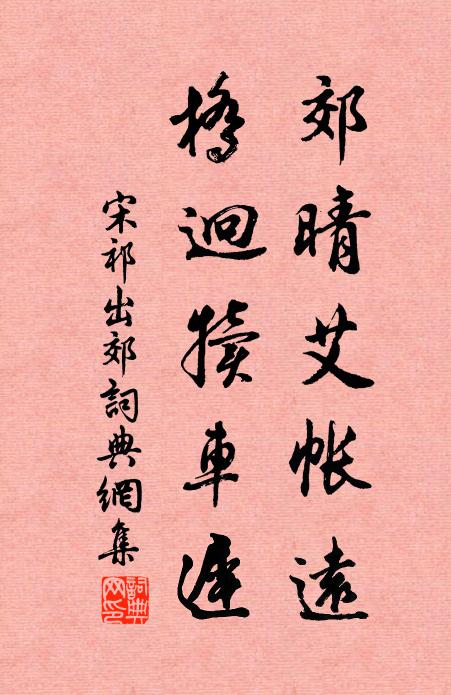 郊晴艾帳遠
橋迥犢車遲
宋祁出郊詞典網集
詞典网印